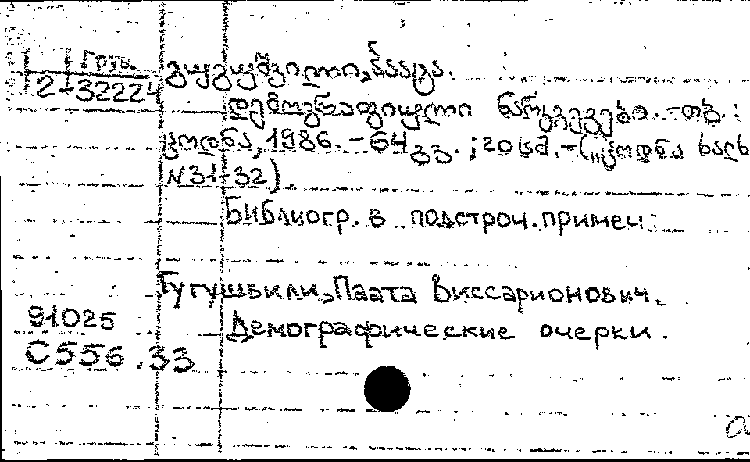 Груз.
2-32224
გუგუშვილი, პაატა.
დემოგრაფიული ნარკვევები. - თბ. :
ცოდნა, 1986. - 64 გვ. ; 20 სმ. - („ცოდნა ხალხს
N31-32)
Библиогр. в подстроч. примеч.
Гугушвили, Паата Виссарионович.
91025
Демографические очерки.
С556.33